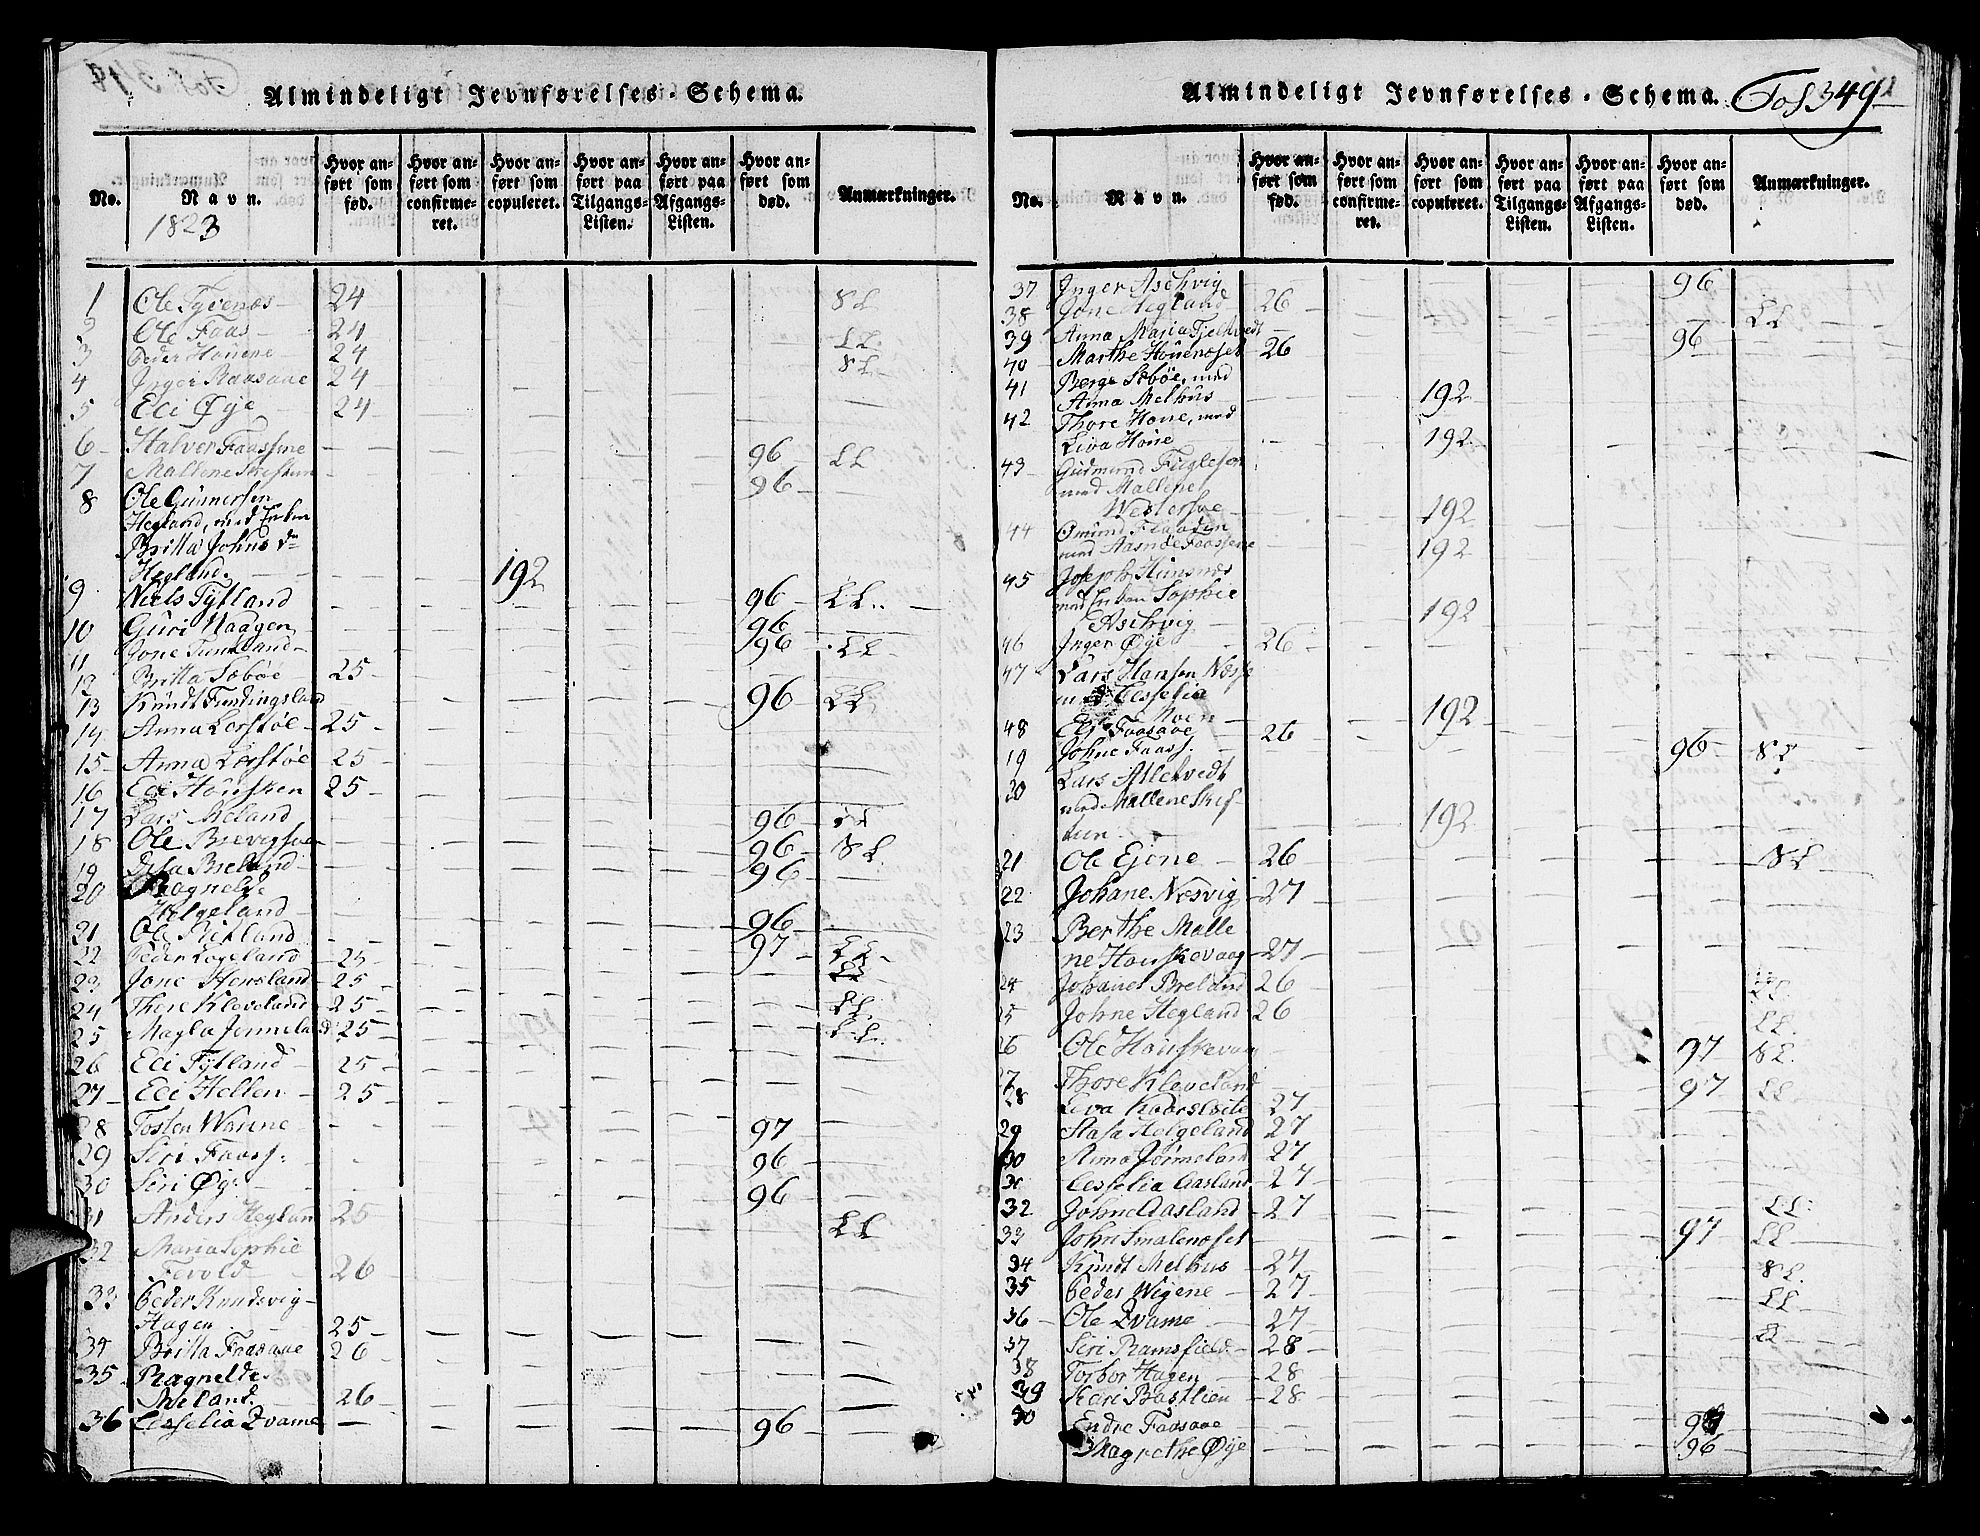 Almindeligt Jevnførelses-Schema.
No.
Navn.
Hvor an-
ført som
fød.
Hvor an-
ført som
confirme-
ret.
Hvor an-
ført som
copuleret.
Hvor an-
ført paa
Tilgangs-
Listen.
Hvor an-
ført paa
Afgangs-
Listen.
Hvor an-
ført som
død.
Anmærkninger.
1823
1 Ole Tyvenæs 24 SL
2 Ole Faas 24 LL.
3 Peder Honene 24 SL.
4 Inger Raasaae 24
5 Eli Øye 24
6 Halver Faassene 96 LL
7 Mallene Skeskun 96
8 Ole Gunnersen
Hegland, med Enken
Britta Johns Dr
Hegland. 192
9 Niels Tytland 96 LL.
10 Guri Haagen 96
11 Jone Tumland 96 LL
12 Britta Søbøe 25
13 Knudt Fundingsland 96 LL
14 Anna Lerstøe 25
15 Anna Lerstøe 25
16 Eli Housken 25
17 Lars Meland 96
18 Ole Brevigsven 96 SL.
19 Breland 96
20 Ragnelde
Helgeland 96
21 Ole Rekland 97 LL.
22 Peder Logeland 25
23 Jone Hensland 25
24 Thore Kleveland 25 LL.
25 Magla Jemeland 25 LL.
26 Eli Tytland 25
27 Eli Hellen 25
28 Tosten Wanne 97
29 Siri Faass: 96
30 Siri Øye 96
31 Anders Heglan 25 LL
32 Maria Sophie
Fevold 26
33 Peder Knudsvig
Hagen 25
34 Britta Faasaae 26
35 Ragnelde
Meland. 26
36 Cesselia Qvame 96
Almindeligt Jevnførelses-Schema. Fol 349
No.
Navn.
Hvor an-
ført som
fød.
Hvor an-
ført som
confirme-
ret.
Hvor an-
ført som
copuleret.
Hvor an-
ført paa
Tilgangs-
Listen.
Hvor an-
ført paa
Afgangs-
Listen.
Hvor an-
ført som
død.
Anmærkninger.
37 Inger Aschvig 96
38 Jone Hegland 26 LL
39 Anna Maria Fjelstvedt 96
40 Marthe Houenøset 26
41 Berge Søbøe, med
Anna Melhus 192
42 Thore Houe, med
Liva Houe 192
43 Gudmund Fuglesen
med Mallene
Westersøe 192
44 Omund Flaaden
med Aasnøe Faassene 192
45 Joseph Hunsnæs
med Enken Sophie
Aschvig 192
46 Inger Øye 26
47 Lars Hansen Næsse
med Cesselia
Moen 192
48 Eli Faasaae 26
19 Johne Faass. 96 SL
20 Lars Alletvedt
med Mallene Skef-
tun 192
21 Ole Ejene 26 SL
22 Johane Næsvig 27
23 Berthe Malle
ne Houskevaag 27
24 Johanes Breland 26 LL.
25 Johne Hegland 26 LL.
26 Ole Houskevaag 97 SL.
27 Thore Kleveland 97 LL
28 Liva 27
29 Aasa Helgeland 27
30 Anna Jømeland 27
31 Cesselia Aasland 27
32 Johne Aasland 27 LL.
33 John Smalenøset 97 LL
34 Knudt Melhus 27 SL.
35 Peder Wigene 27 LL
36 Ole Qvame 27
37 Siri Ramsfield 28
38 Torbor Hagen 28
39 Kari Bastlien 28
Endre Faasaae
Magrethe Øye 96